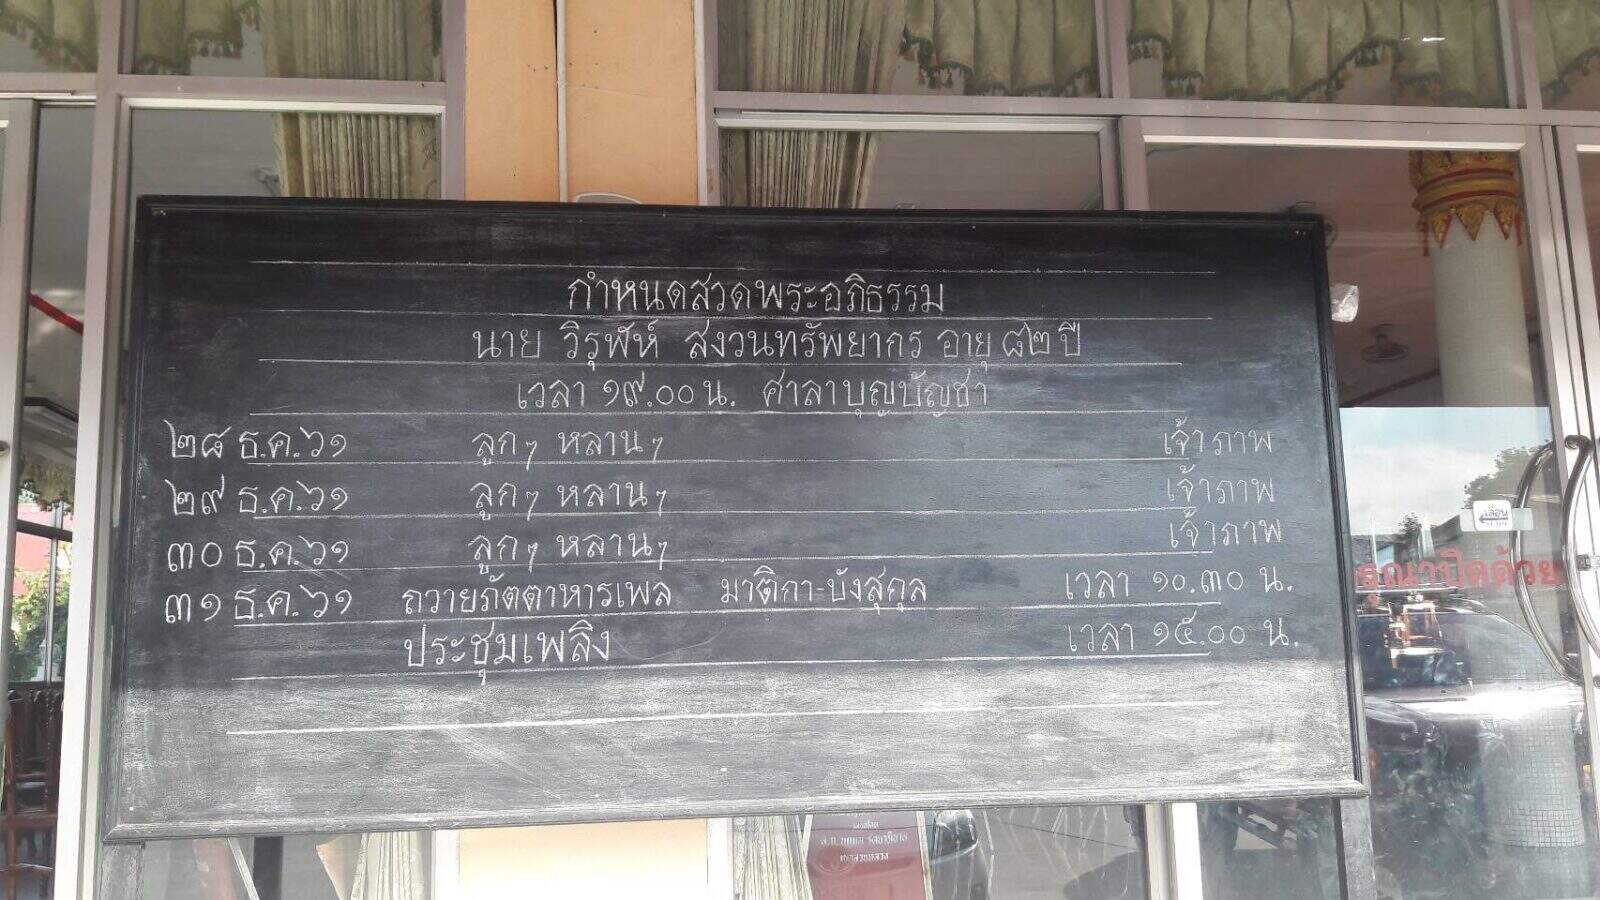 กำหนดสวดพระอภิธรรม
นาย วิรุฬห์ สงวนทรัพยากร อายุ ๘๒ ปี
เวลา ๑๙.๐๐ น. ศาลาบุญบัญชา
๒๘ ธ.ค.๖๑ ลูกๆ หลานๆ เจ้าภาพ
๒๙ ธ.ค.๖๑ ลูกๆ หลานๆ เจ้าภาพ
๓๐ ธ.ค.๖๑ ลูกๆ หลานๆ เจ้าภาพ
๓๑ ธ.ค.๖๑ ถวายภัตตาหารเพล มาติกา-บังสุกุล เวลา ๑๐.๓๐ น.
ประชุมเพลิง เวลา ๑๕.๐๐ น.
เลื่อน
รุณาปิดด้วย